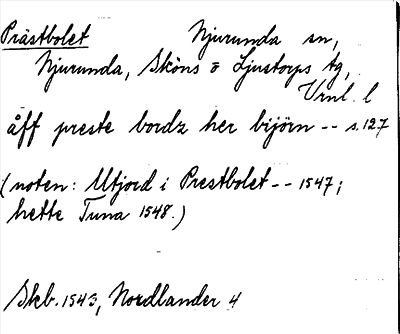 Prästbolet Njurunda sn,
Njurunda, Sköns o Ljustorps tg,
Vrnl. l
åff preste bordz her bijörn -- s. 127
(noten: Utjord i Prestbolet -- 1547;
hette Tuna 1548.)
Skb. 1543, Nordlander 4